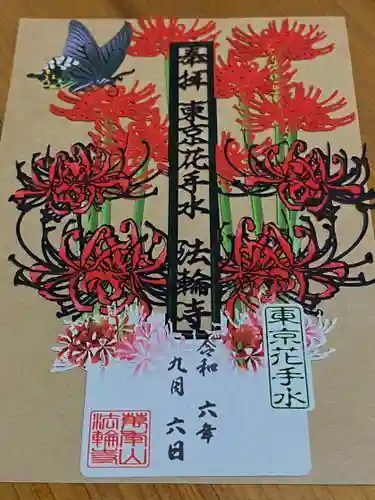 奉拝 東京花手水 法輪寺
令和 六年
九月 六日
東京花手水
萬年山
法輪寺